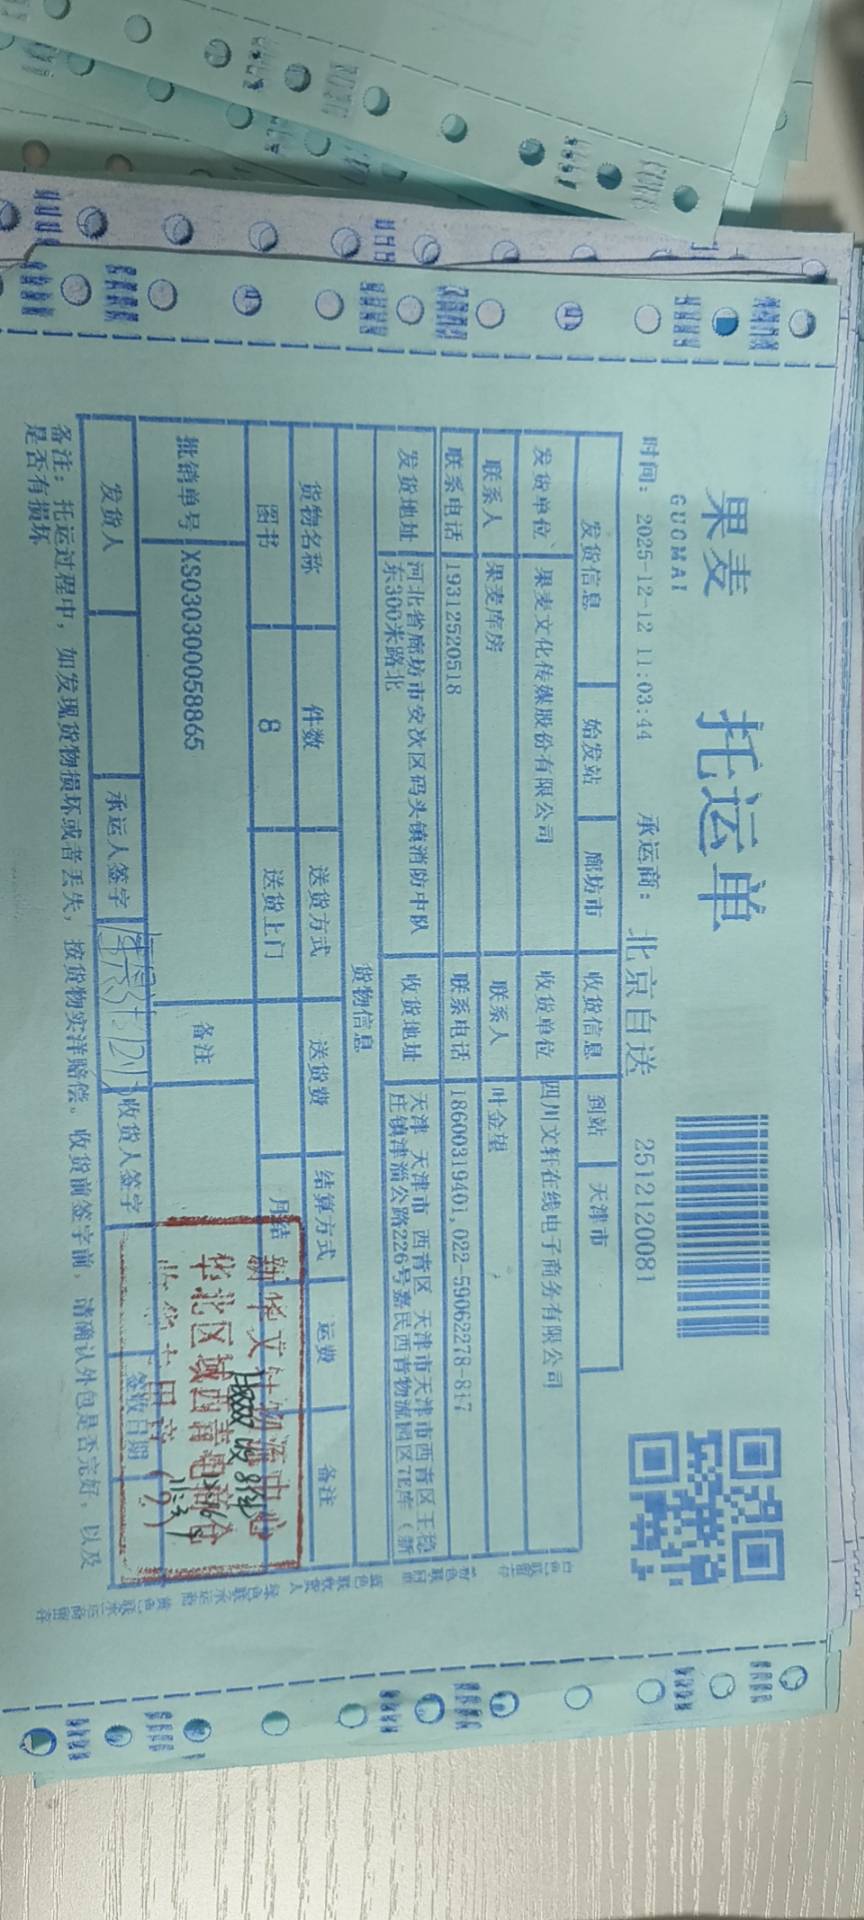 果麦
GUOMAI
托运单
时间： 2025-12-12 11:03:44 承运商： 北京自送 2512120081
发货信息 始发站 廊坊市 收货信息 到站 天津市
发货单位 果麦文化传媒股份有限公司 收货单位 四川文轩在线电子商务有限公司
联系人 果麦库房 联系人 叶金望
联系电话 19312520518 联系电话 18600319401,022-59062278-817
发货地址 河北省廊坊市安次区码头镇消防中队 收货地址 天津 天津市 西青区 天津市天津市西青区王稳
东300米路北 庄镇津淄公路226号嘉民西青物流园区7E库（新
货物信息
货物名称 件数 送货方式 送货费 结算方式 运费 备注
图书 8 送货上门 月结
批销单号 XS030300058865 备注
新华文轩物流中心
华北区域西青电商仓
收货专用章
发货人 承运人签字 收货人签字 签收日期
备注：托运过程中，如发现货物损坏或者丢失，按货物实洋赔偿。收货前签字前，请确认外包是否完好，以及
是否有损坏